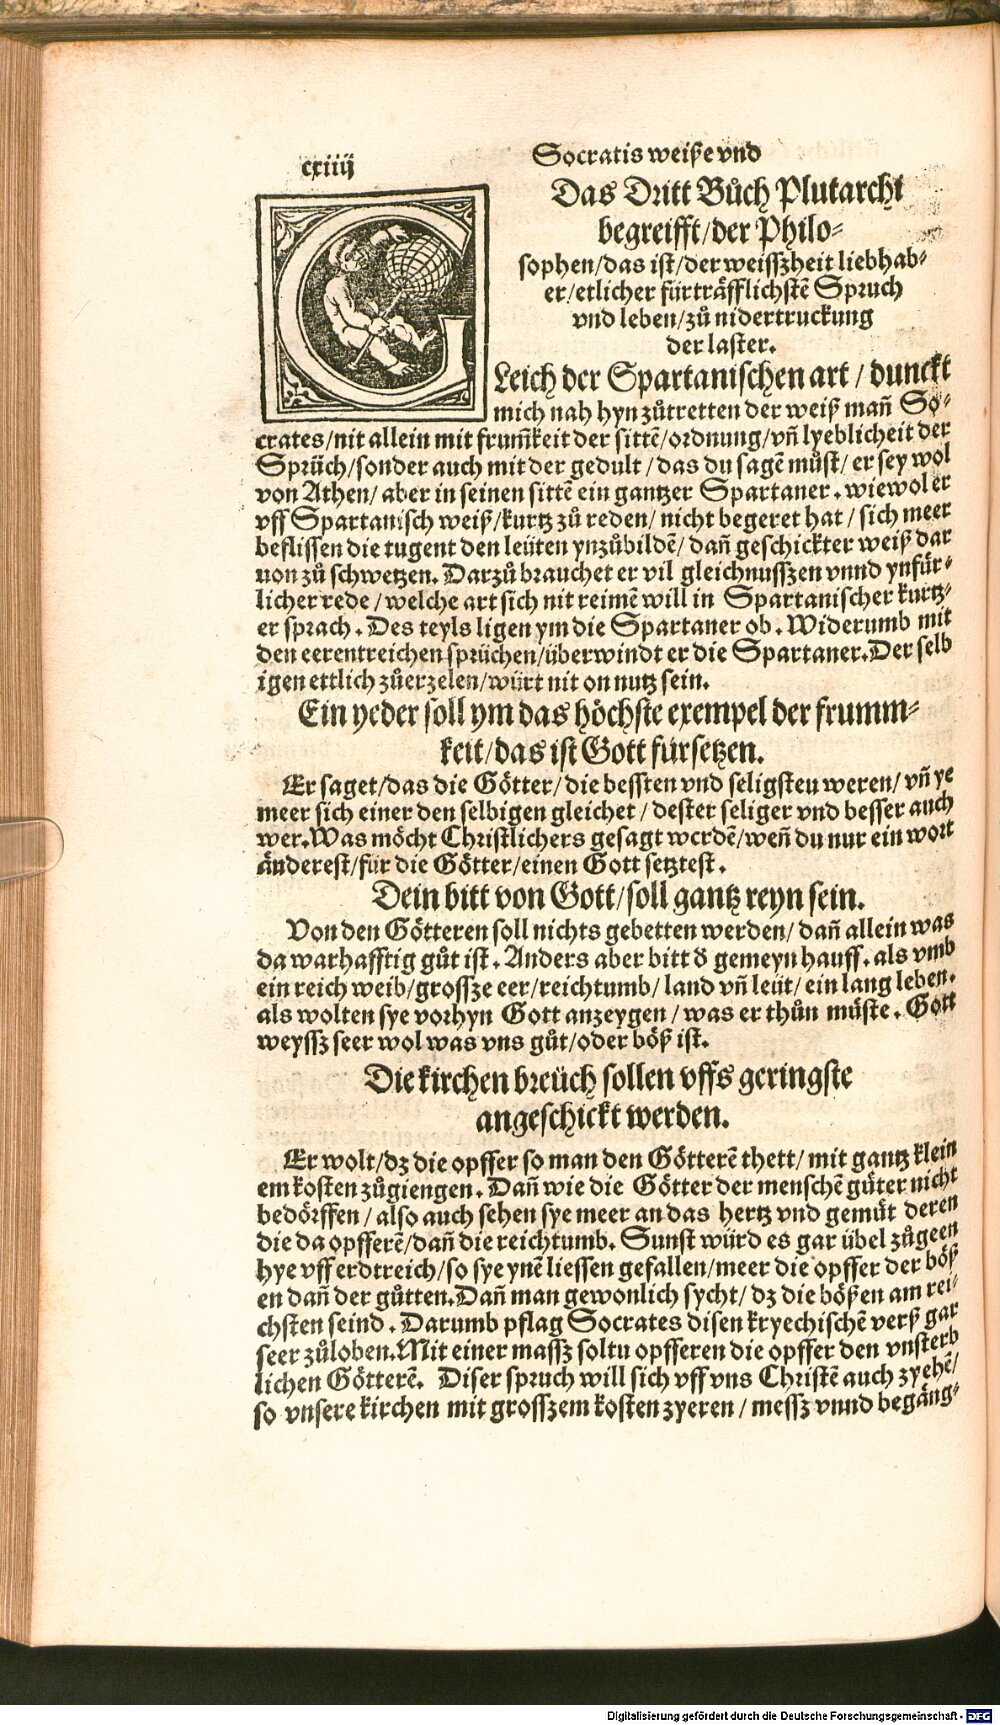 cxiiij
Socratis weiße vnd
Das Dritt Bůch Plutarchi
begreifft/der Philo⸗
sophen/das ist/der weissʒheit liebhab⸗
er/etlicher fürträfflichstē Spruch
vnd leben/zů nidertruckung
der laster.
GLeich der Spartanischen art / dunckt
mich nah hyn zůtretten der weiß man̄ So⸗
crates/nit allein mit frum̄keit der sittē/ordnung/vn̄ lyeblicheit der
Sprüch/sonder auch mit der gedult / das du sagē můst/ er sey wol
von Athen/ aber in seinen sittē ein gantzer Spartaner. wiewol er
vff Spartanisch weiß/kurtz zů reden/ nicht begeret hat / sich meer
beflissen die tugent den leüten ynzůbildē/ dan̄ geschickter weiß dar
uon zů schwetzen. Darzů brauchet er vil gleichnussʒen vnnd ynfür⸗
licher rede / welche art sich nit reimē will in Spartanischer kurtz⸗
er sprach. Des teyls ligen ym die Spartaner ob. Widerumb mit
den eerentreichen sprüchen/überwindt er die Spartaner. Der selb
igen ettlich zůerzelen/würt nit on nutz sein.
Ein yeder soll ym das höchste exempel der frumm⸗
keit/das ist Gott fürsetzen.
Er saget/das die Götter/die bessten vnd seligsten weren/ vn̄ ye
meer sich einer den selbigen gleichet / dester seliger vnd besser auch
wer. Was möcht Christlichers gesagt werdē/wen̄ du nur ein wort
änderest/für die Götter/einen Gott setztest.
Dein bitt von Gott/soll gantz reyn sein.
Von den Götteren soll nichts gebetten werden/ dan̄ allein was
da warhafftig gůt ist. Anders aber bitt ð gemeyn hauff. als vmb
ein reich weib/grossʒe eer/reichtumb/ land vn̄ leüt/ ein lang leben.
als wolten sye vorhyn Gott anzeygen / was er thůn müste. Gott
weyssʒ seer wol was vns gůt/oder böß ist.
Die kirchen breüch sollen vffs geringste
angeschickt werden.
Er wolt/dʒ die opffer so man den Götterē thett/ mit gantz klein
em kosten zůgiengen. Dan̄ wie die Götter der menschē gůter nicht
bedörffen / also auch sehen sye meer an das hertz vnd gemüt deren
die da opfferē/dan̄ die reichtumb. Sunst würd es gar übel zůgeen
hye vff erdtreich/so sye ynē liessen gefallen/meer die opffer der böß
en dan̄ der gůtten. Dan̄ man gewonlich sycht/ dʒ die bößen am rei⸗
chsten seind. Darumb pflag Socrates disen kryechischē verß gar
seer zůloben. Mit einer massʒ soltu opfferen die opffer den vnsterb
lichen Götterē. Diser spruch will sich vff vns Christē auch zyehē/
so vnsere kirchen mit grossʒem kosten zyeren / messʒ vnnd begäng⸗
Digitalisierung gefördert durch die Deutsche Forschungsgemeinschaft - DFG